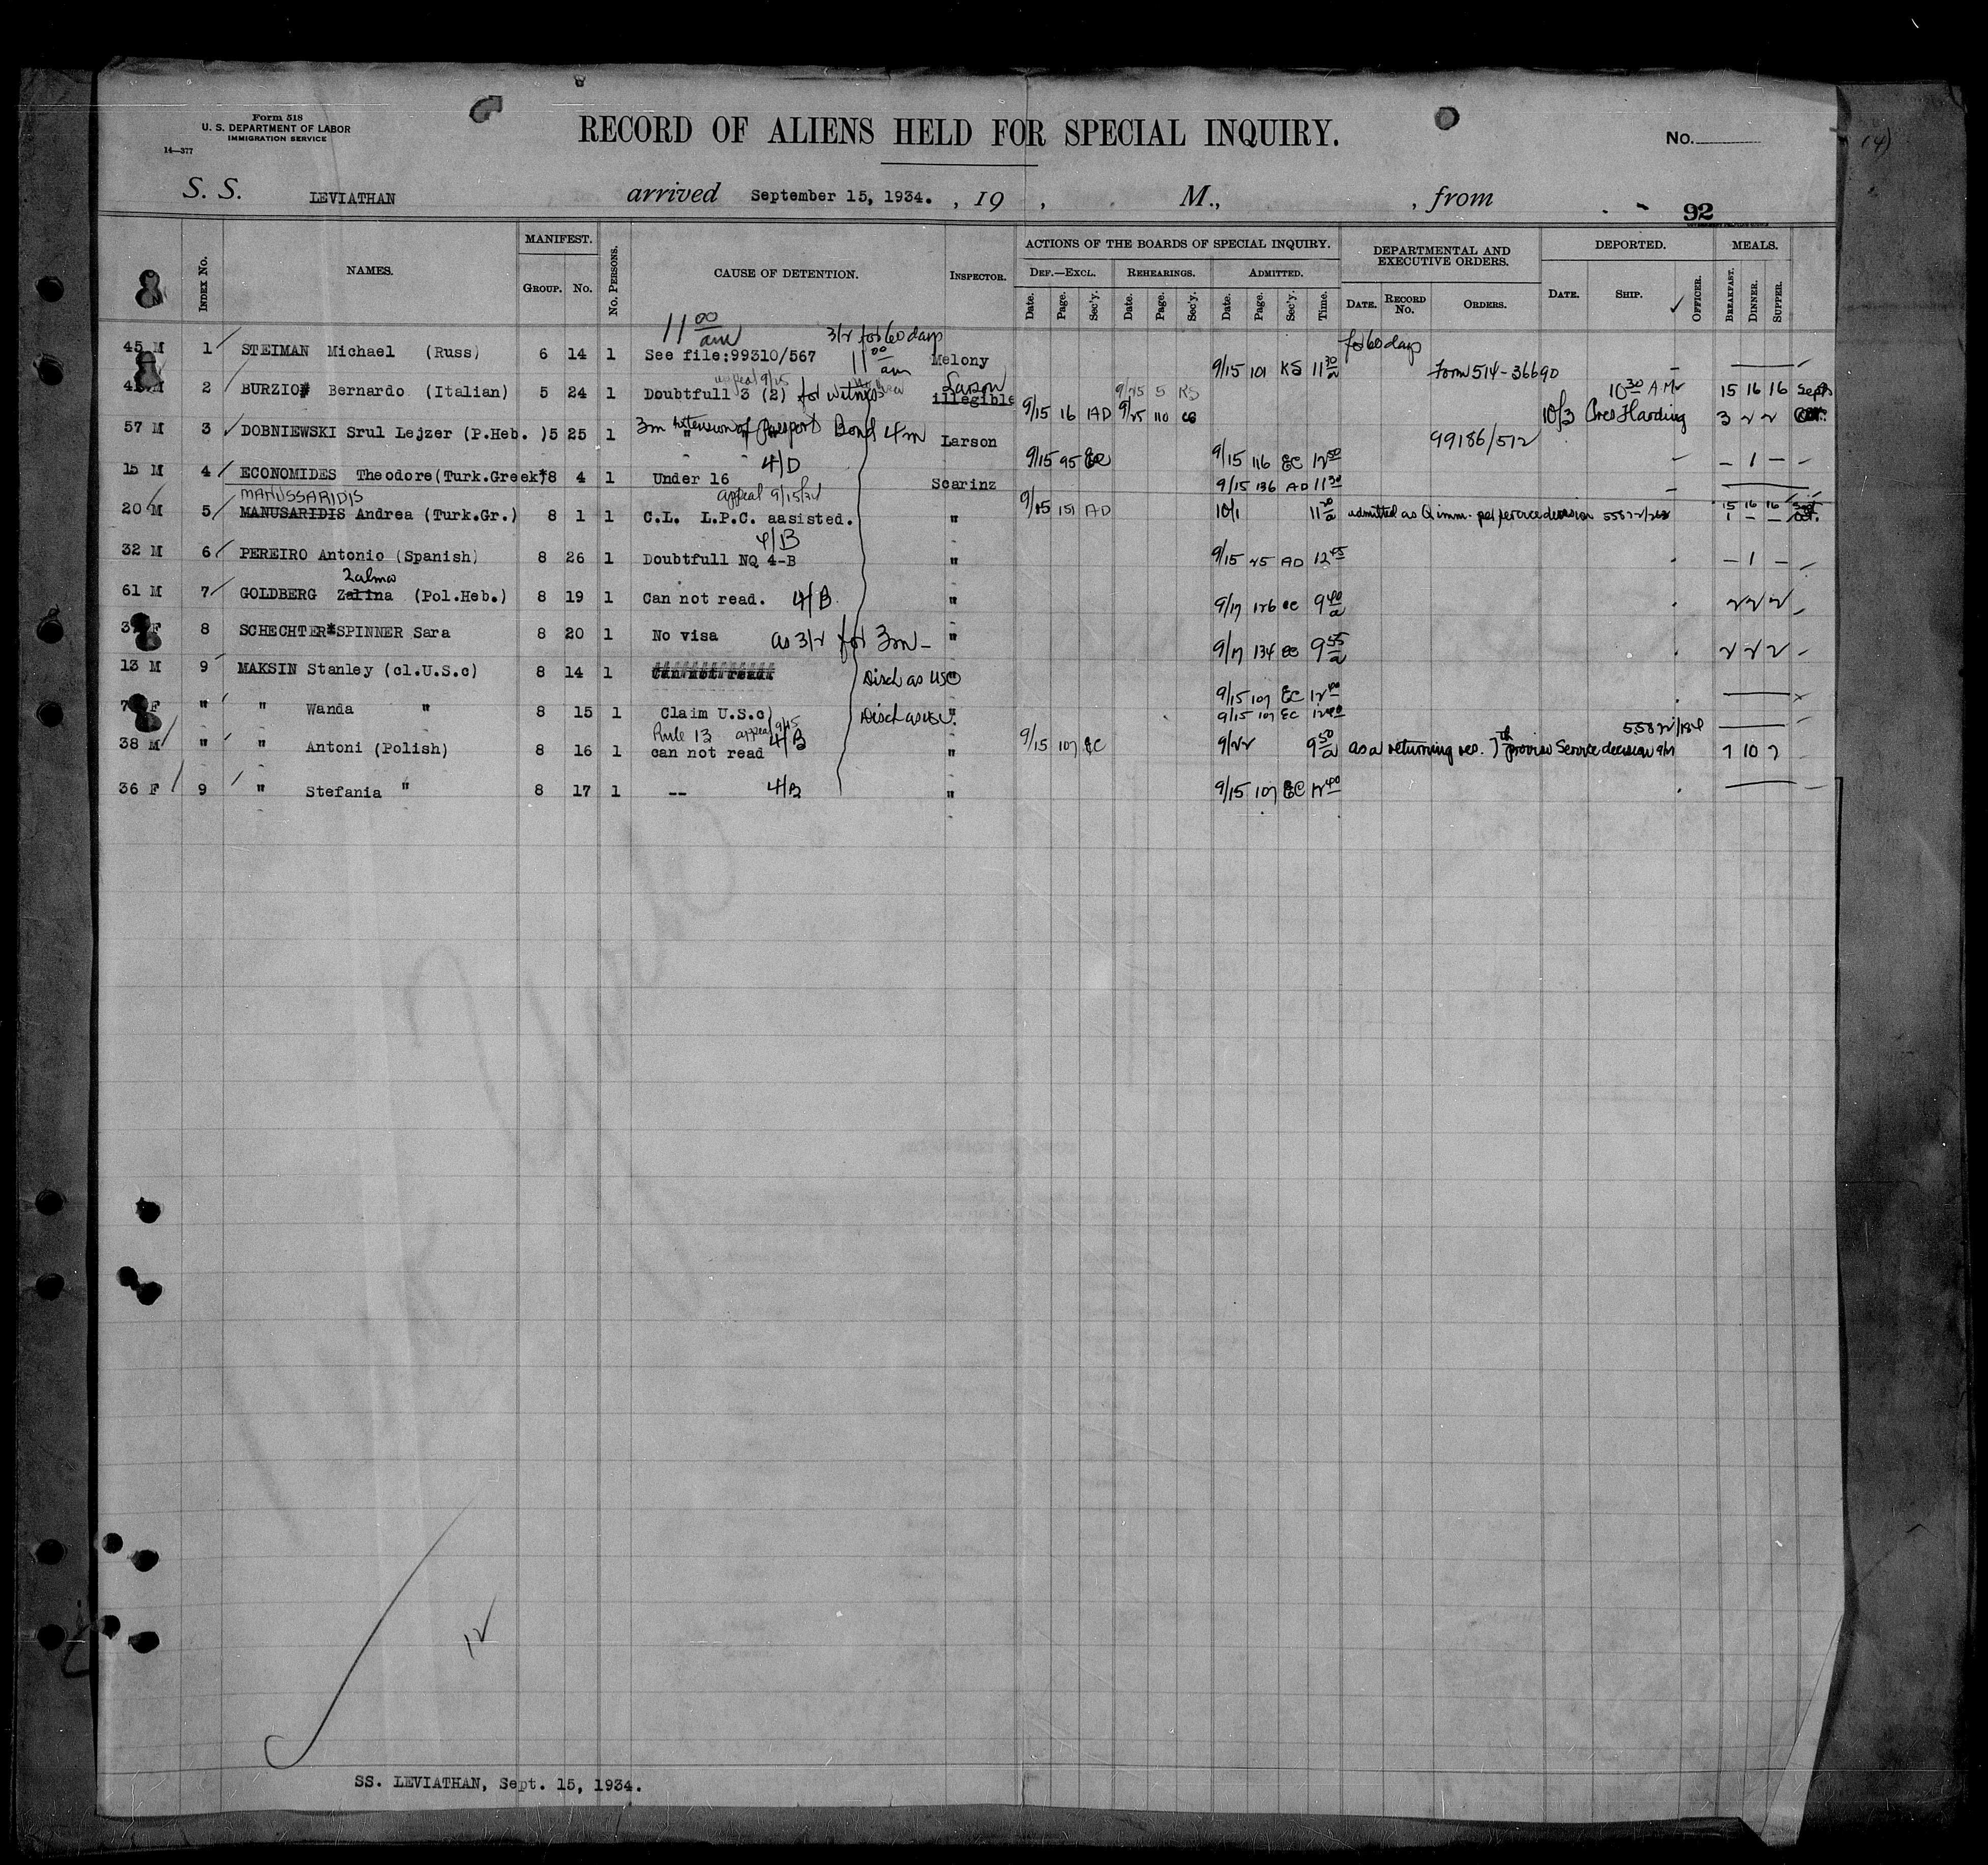 Form 518
U. S. DEPARTMENT OF LABOR
IMMIGRATION SERVICE
14—377
RECORD OF ALIENS HELD FOR SPECIAL INQUIRY.
No.
S. S. LEVIATHAN arrived September 15, 1934. , 19 , M., , from
92
INDEX No. NAMES. MANIFEST. GROUP. No. No. PERSONS. CAUSE OF DETENTION. INSPECTOR. ACTIONS OF THE BOARDS OF SPECIAL INQUIRY. DEF.—EXCL. Date. Page. Sec'y. REHEARINGS. Date. Page. Sec'y. ADMITTED. Date. Page. Sec'y. Time. DEPARTMENTAL AND EXECUTIVE ORDERS. DATE. RECORD No. ORDERS. DEPORTED. DATE. SHIP. OFFICER. MEALS. BREAKFAST. DINNER. SUPPER.
11 00 am 3/2 for 60 days for 60 days
45 M 1 STEIMAN Michael (Russ) 6 14 1 See file:99310/567 11 00 am Melony 9/15 101 KS 11 30 a Form 514-36690
2 BURZIO Bernardo (Italian) 5 24 1 Doubtfull 3 (2) for witness appeal 9/25 Larson illegible 9/15 16 AD 9/25 5 KS 9/25 110 10 30 A.M. 10/3 Pres Harding 15 16 16 Sept 3 2 2 Oct.
57 M 3 DOBNIEWSKI Srul Lejzer (P.Heb. ) 5 25 1 3m extension of passport Bond 4m Larson 9/15 95 EC 9/15 116 EC 12 50 99186/512 – 1 –
15 M 4 ECONOMIDES Theodore(Turk.Greek* 8 4 1 Under 16 4/D Scarinz 9/15 136 AD 11 30
MANUSSARIDIS
20 M 5 MANUSARIDIS Andrea (Turk.Gr.) 8 1 1 C.L. L.P.C. aasisted. appeal 9/15/34 " 9/15 151 AD 10/1 11 20 a admitted as Q imm. per decision 15 16 16 Sept 1 – – Oct.
32 M 6 PEREIRO Antonio (Spanish) 8 26 1 Doubtfull NQ 4-B 4/B " 9/15 25 AD 12 45 – 1 –
Zalma
61 M 7 GOLDBERG Zalina (Pol.Heb.) 8 19 1 Can not read. 4/B " 9/17 126 EC 9 40 a 2 2 2
F 8 SCHECHTER*SPINNER Sara 8 20 1 No visa as 3/2 for 3m– " 9/17 134 EC 9 55 a 2 2 2
13 M 9 MAKSIN Stanley (cl.U.S.c) 8 14 1 Can not read. Disch as USC " 9/15 107 EC 12 40
F " " Wanda " 8 15 1 Claim U.S.c) Disch as USC. " 9/15 107 EC 12 40
Rule 13 appeal 9/15
38 M " " Antoni (Polish) 8 16 1 can not read 4/B " 9/15 107 EC 9/22 9 50 a as a returning res. 7th proviso Service decision 7 10 7
36 F 9 " Stefania " 8 17 1 -- 4/B " 9/15 107 EC 12 40
12
SS. LEVIATHAN, Sept. 15, 1934.